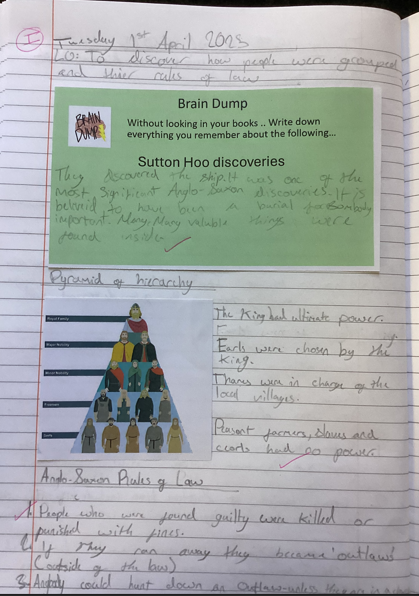 I
Tuesday 1st April 2025
LO: To discover how people were grouped
and thier rules of law
BRAIN
DUMP
Brain Dump
Without looking in your books .. Write down
everything you remember about the following...
Sutton Hoo discoveries
They discovered the ship. It was one of the
most significant Anglo-Saxon discoveries. It is
to have been a burial for Somebody
important. Many, Many valuble things were
found inside.
Pyramid of hierarchy
Royal Family
Major Nobility
Minor Nobility
Freemen
Ceorls
The King had ultimate power.
Earls were chosen by the
King.
Thanes were in charge of the
local villages.
Peasant farmers, slaves and
ceorls had no power.
Anglo-Saxon Rules of Law
1. People who were found guilty were killed or
punished with fines.
2. If They ran away they became 'outlaws'
(outside of the law)
3. could hunt down an Outlaw-unless